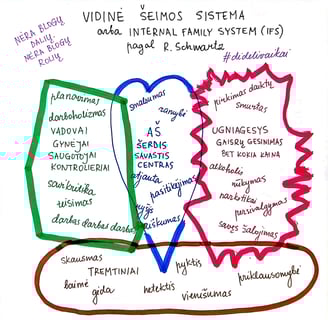 VIDINĖ ŠEIMOS SISTEMA
arba INTERNAL FAMILY SYSTEM (IFS)
pagal R. Schwartz
NĖRA BLOGŲ
DALIŲ.
NĖRA BLOGŲ
ROLIŲ.
#didelivaikai
planavimas
darboholizmas
VADOVAI
GYNĖJAI
SAUGOTOJAI
KONTROLIERIAI
savikritika
teisimas
darbas darbas darbas
smalsumas
ramybė
AŠ
ŠERDIS
SAVASTIS
CENTRAS
atjauta
pasitikėjimas
ryšys
aiškumas
pirkimas daiktų
smurtas
UGNIAGESYS
GAISRŲ GESINIMAS
BET KOKIA KAINA
alkoholis
rūkymas
narkotikai
persivalgymas
savęs žalojimas
skausmas
TREMTINIAI
pyktis
priklausomybė
baimė
gėda
netektis
vienišumas